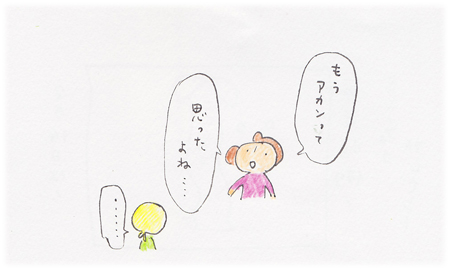 もう
アカンって
思った
よね‥‥
‥‥‥